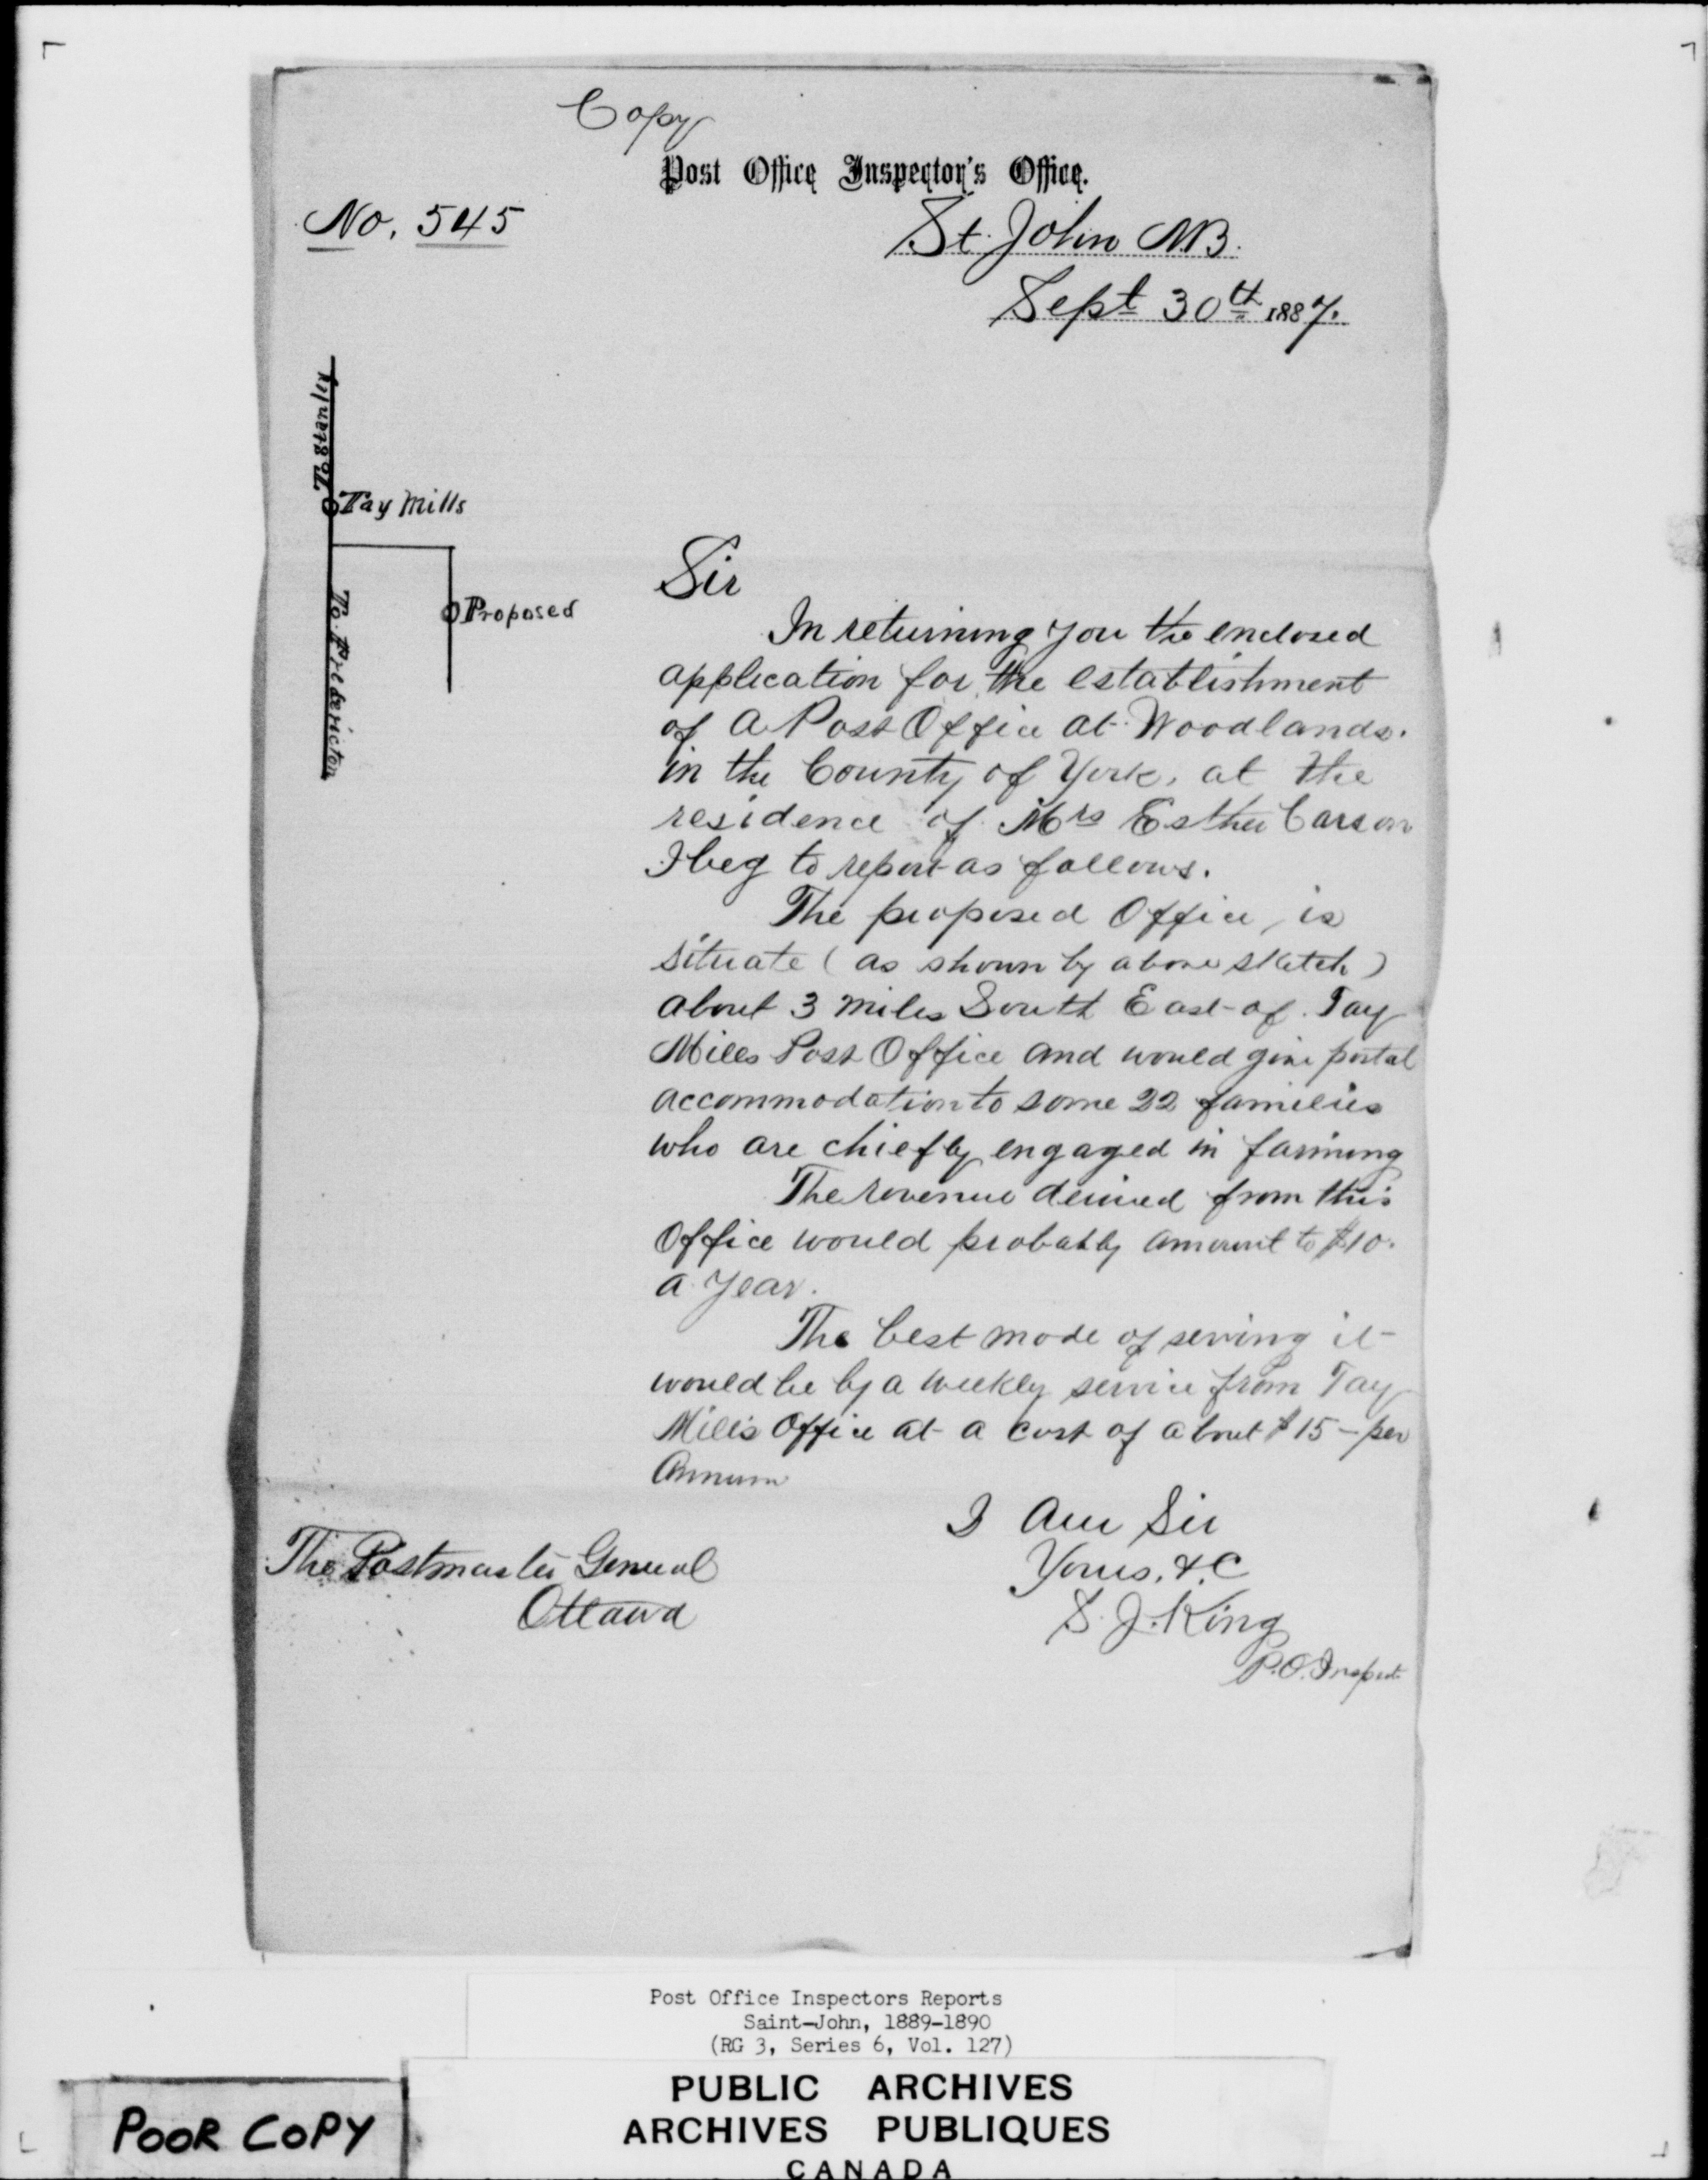 Copy
Post Office Inspector's Office.
No. 545
St. John NB.
Sept 30th 1887.
To Stanley
Tay Mills
Proposed
To Fredericton
Sir
In returning you the enclosed
application for the establishment
of a Post Office at Woodlands.
in the County of York, at the
residence of Mrs Esther Carson
I beg to report as follows.
The proposed Office, is
situate (as shown by above sketch)
about 3 miles South East of Tay
Mills Post Office and would give postal
accommodation to some 22 families
who are chiefly engaged in farming
The revenue derived from this
Office would probably amount to $10.
a year.
The best mode of serving it
would be by a weekly service from Tay
Mills Office at a cost of about $15 - per
Annum
I am Sir
Yours, &c
S. J. King
P.O. Inspect.
The Postmaster General
Ottawa
Post Office Inspectors Reports
Saint-John, 1889-1890
(RG 3, Series 6, Vol. 127)
PUBLIC ARCHIVES
ARCHIVES PUBLIQUES
CANADA
POOR COPY